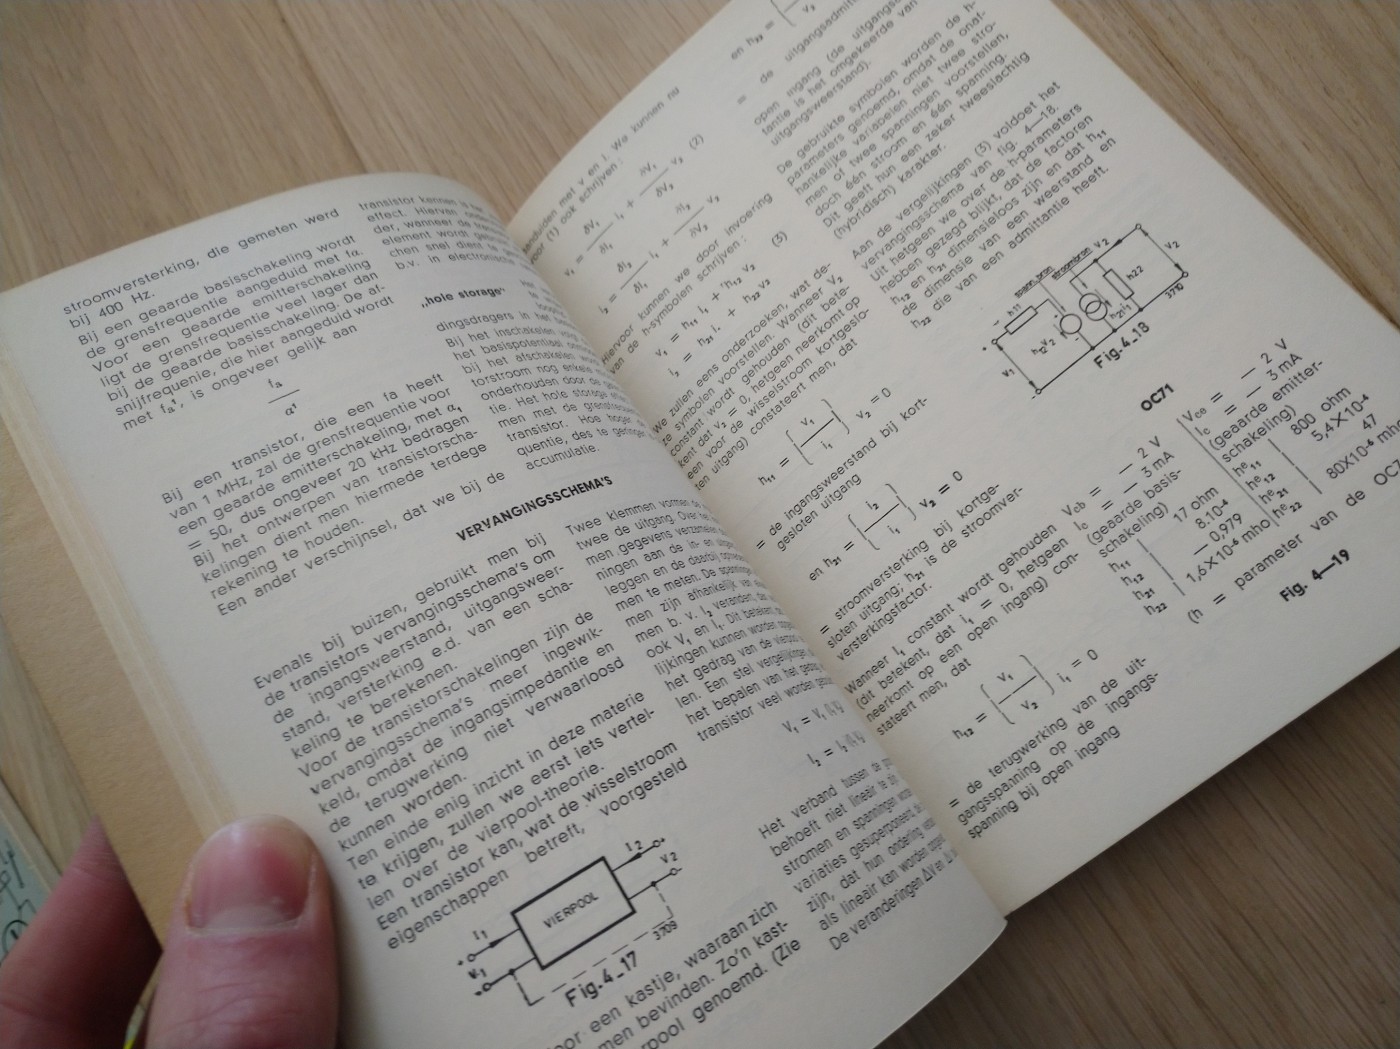 stroomversterking, die gemeten werd
bij 400 Hz.
Bij een geaarde basisschakeling wordt
de grensfrequentie aangeduid met fα.
Voor een geaarde emitterschakeling
ligt de grensfrequentie veel lager dan
bij de geaarde basisschakeling. De af-
snijfrequenie, die hier aangeduid wordt
met fα', is ongeveer gelijk aan
fα
α'
Bij een transistor, die een fa heeft
van 1 MHz, zal de grensfrequentie voor
een geaarde emitterschakeling, met α1
= 50, dus ongeveer 20 kHz bedragen
Bij het ontwerpen van transistorscha-
kelingen dient men hiermede terdege
rekening te houden.
Een ander verschijnsel, dat we bij de
transistor kennen is
effect. Hiervan
der, wanneer de
element wordt
chen snel dient te
b.v. in electronische
„hole storage"
dingsdragers in het
Bij het inschakelen
het basispotentiaal
bij het afschakelen
torstroom nog enkele
onderhouden door de
tie. Het hole storage
men met de grensfrequen
transistor. Hoe hoger
quentie, des te geringer
accumulatie.
VERVANGINGSSCHEMA'S
Evenals bij buizen, gebruikt men bij
de transistors vervangingsschema's om
de ingangsweerstand, uitgangsweer-
stand, versterking e.d. van een scha-
keling te berekenen.
Voor de transistorschakelingen zijn de
vervangingsschema's meer ingewik-
keld, omdat de ingangsimpedantie en
de terugwerking niet verwaarloosd
kunnen worden.
Ten einde enig inzicht in deze materie
te krijgen, zullen we eerst iets vertel-
len over de vierpool-theorie.
Een transistor kan, wat de wisselstroom
eigenschappen betreft, voorgesteld
I1
V1
VIERPOOL
I2
V2
3709
Fig.4_17
oor een kastje, waaraan zich
men bevinden. Zo'n kast-
rpool genoemd. (Zie
Twee klemmen vormen de
twee de uitgang. Over het
men gegevens verzamelen
ningen aan de in- en uitgang
leggen en de daarbij
men te meten. De spanningen
men zijn afhankelijk van
men b. v. I2 verandert, dan
ook V1 en I1. Dit betekent,
lijkingen kunnen worden
het gedrag van de vierpool
len. Een stel vergelijkingen
het bepalen van het gedrag
transistor veel worden
V1 = V1 (I1,
I2 = I2 (I1,
Het verband tussen de
behoeft niet lineair te zijn
stromen en spanningen
variaties gesuperponeerd,
zijn, dat hun onderling
als lineair kan worden
De veranderingen ΔV en
aanduiden met v en i. We kunnen nu
voor (1) ook schrijven:
v1 = δV1/δI1 i1 + δV1/δV2 v2 (2)
i2 = δI2/δI1 i1 + δI2/δV2 v2
Hiervoor kunnen we door invoering
van de h-symbolen schrijven:
v1 = h11 i1 + h12 v2 (3)
i2 = h21 i1 + h22 v2
We zullen eens onderzoeken, wat de-
ze symbolen voorstellen. Wanneer V2
constant wordt gehouden (dit bete-
kent dat v2 = 0, hetgeen neerkomt op
een voor de wisselstroom kortgeslo-
ten uitgang) constateert men, dat
h11 = (v1/i1) v2 = 0
= de ingangsweerstand bij kort-
gesloten uitgang
en h21 = (i2/i1) v2 = 0
= stroomversterking bij kortge-
sloten uitgang; h21 is de stroomver-
versterkingsfactor.
Wanneer I1 constant wordt gehouden
(dit betekent, dat i1 = 0, hetgeen
neerkomt op een open ingang) con-
stateert men, dat
h12 = (v1/v2) i1 = 0
= de terugwerking van de uit-
gangsspanning op de ingangs-
spanning bij open ingang
en h22 = ( v2
= de uitgangsadmit
open ingang (de uitgangs
tantie is het omgekeerde van
uitgangsweerstand).
De gebruikte symbolen worden de h-
parameters genoemd, omdat de onaf-
hankelijke variabelen niet twee stro-
men of twee spanningen voorstellen,
doch één stroom en één spanning.
Dit geeft hun een zeker tweeslachtig
(hybridisch) karakter.
Aan de vergelijkingen (3) voldoet het
vervangingsschema van fig. 4—18.
Uit hetgeen we over de h-parameters
hebben gezegd blijkt, dat de factoren
h12 en h21 dimensieloos zijn en dat h11
de dimensie van een weerstand en
h22 die van een admittantie heeft.
spann.bron
stroombron
V2
h11
h12v2
h21i1
h22
v1
v2
3710
Fig.4_18
OC71
Vcb = — 2 V
Ic = — 3 mA
(geaarde basis-
schakeling)
h11 17 ohm
h12 8.10-4
h21 — 0,979
h22 1,6X10-6 mho
Vce = — 2 V
Ic = — 3 mA
(geaarde emitter-
schakeling)
he11 800 ohm
he12 5,4X10-4
he21 47
he22 80X10-6 mho
(h = parameter van de OC7
Fig. 4—19